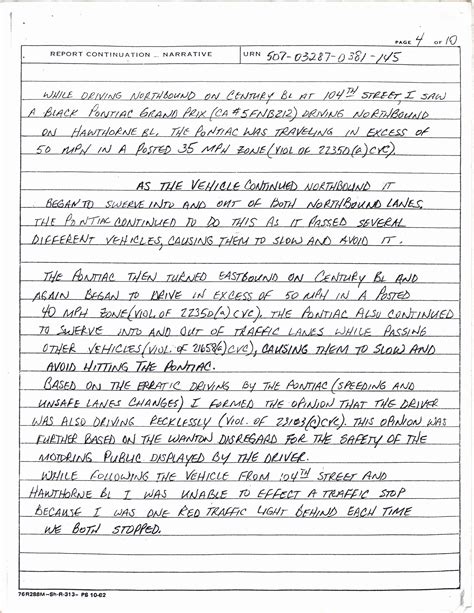 PAGE 4 OF 10
REPORT CONTINUATION - NARRATIVE URN 507-03287-0381-145
WHILE DRIVING NORTHBOUND ON CENTURY BL AT 104TH STREET, I SAW
A BLACK PONTIAC GRAND PRIX (CA #5FNB212) DRIVING NORTHBOUND
ON HAWTHORNE BL. THE PONTIAC WAS TRAVELING IN EXCESS OF
50 MPH IN A POSTED 35 MPH ZONE (VIOL OF 22350(a) CVC).
AS THE VEHICLE CONTINUED NORTHBOUND IT
BEGAN TO SWERVE INTO AND OUT OF BOTH NORTHBOUND LANES.
THE PONTIAC CONTINUED TO DO THIS AS IT PASSED SEVERAL
DIFFERENT VEHICLES, CAUSING THEM TO SLOW AND AVOID IT.
THE PONTIAC THEN TURNED EASTBOUND ON CENTURY BL AND
AGAIN BEGAN TO DRIVE IN EXCESS OF 50 MPH IN A POSTED
40 MPH ZONE (VIOL OF 22350(a) CVC). THE PONTIAC ALSO CONTINUED
TO SWERVE INTO AND OUT OF TRAFFIC LANES WHILE PASSING
OTHER VEHICLES (VIOL. OF 21658(a) CVC), CAUSING THEM TO SLOW AND
AVOID HITTING THE PONTIAC.
BASED ON THE ERRATIC DRIVING BY THE PONTIAC (SPEEDING AND
UNSAFE LANES CHANGES) I FORMED THE OPINION THAT THE DRIVER
WAS ALSO DRIVING RECKLESSLY (VIOL. OF 23103(A) CVC). THIS OPINION WAS
FURTHER BASED ON THE WANTON DISREGARD FOR THE SAFETY OF THE
MOTORING PUBLIC DISPLAYED BY THE DRIVER.
WHILE FOLLOWING THE VEHICLE FROM 104TH STREET AND
HAWTHORNE BL I WAS UNABLE TO EFFECT A TRAFFIC STOP
BECAUSE I WAS ONE RED TRAFFIC LIGHT BEHIND EACH TIME
WE BOTH STOPPED.
76R288M-Sh-R-313- PS 10-82